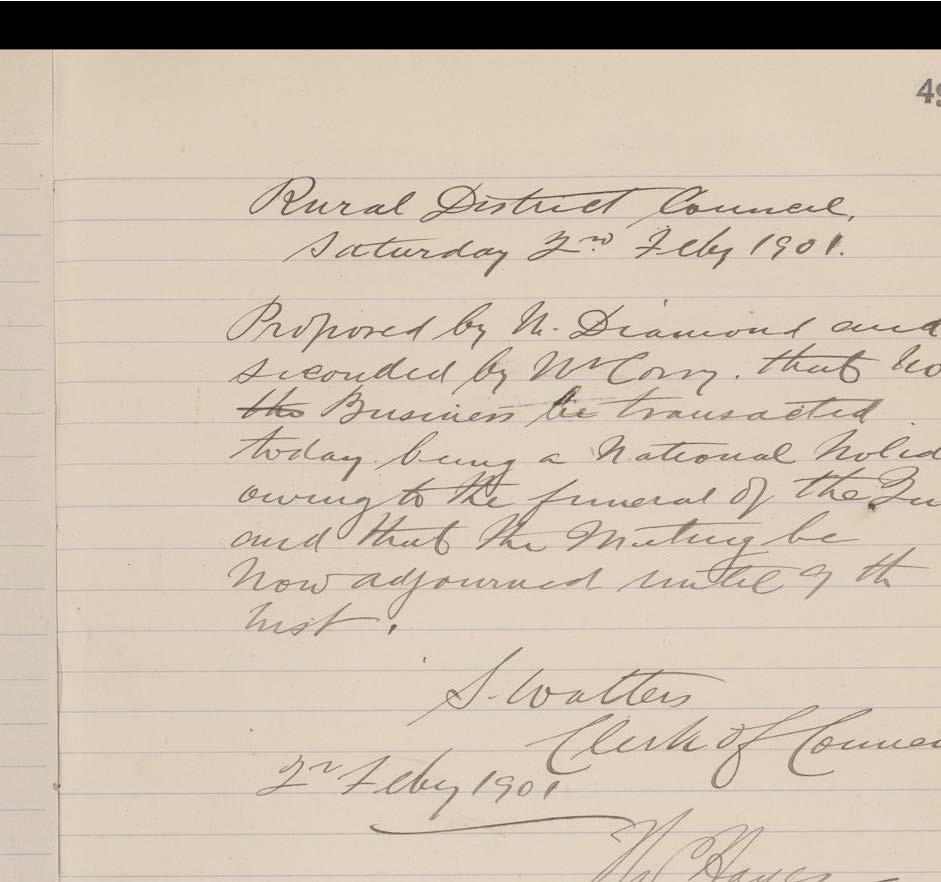 49
Rural District Council,
Saturday 2nd Feby 1901.
Proposed by N. Diamond and
seconded by Mr Corry. that no
the Business be transacted
today being a National Holid
owing to the funeral of the Qu
and that the Meeting be
Now adjourned until 9 th
Inst.
S. Watters
Clerk of Counci
2nd Feby 1901